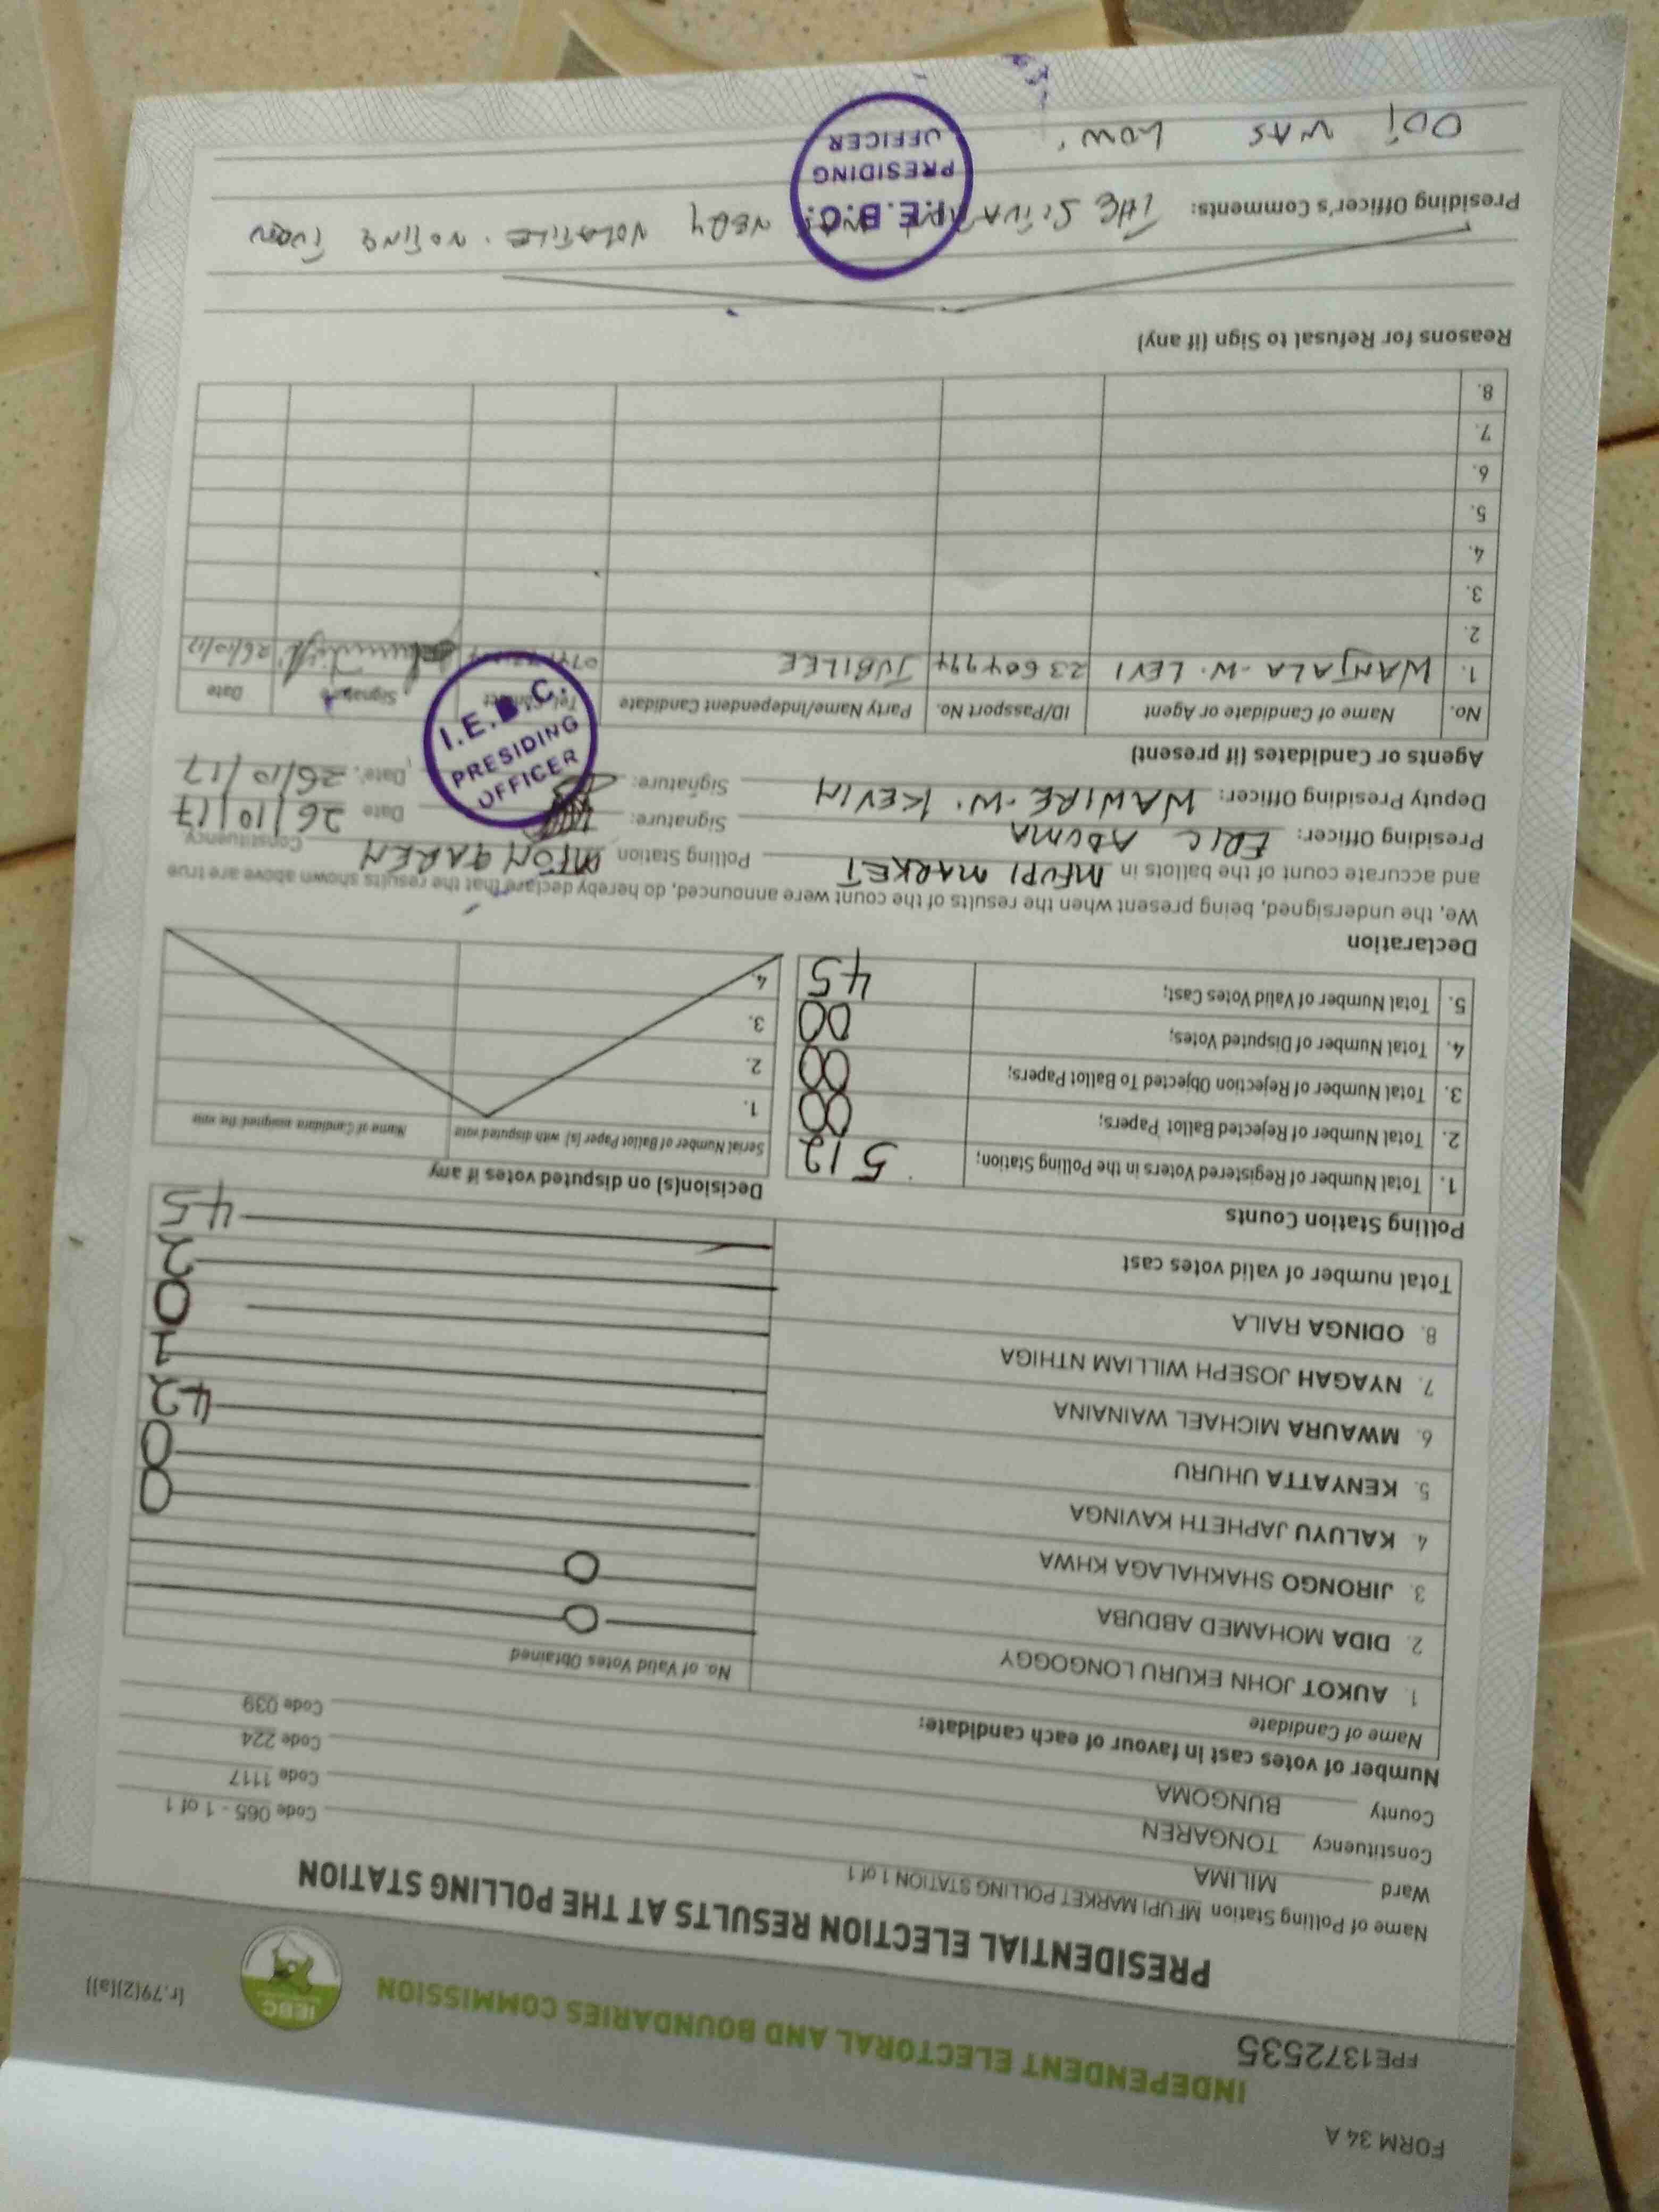 FORM 34 A
INDEPENDENT ELECTORAL AND BOUNDARIES COMMISSION
FPE1372535
IEBC
(r.79(2)(a))
PRESIDENTIAL ELECTION RESULTS AT THE POLLING STATION
Name of Polling Station MFUPI MARKET POLLING STATION 1 of 1 Code 065 - 1 of 1
Ward MILIMA Code 1117
Constituency TONGAREN Code 224
County BUNGOMA Code 039
Number of votes cast in favour of each candidate:
Name of Candidate No. of Valid Votes Obtained
1. AUKOT JOHN EKURU LONGOGGY 0
2. DIDA MOHAMED ABDUBA 0
3. JIRONGO SHAKHALAGA KHWA 0
4. KALUYU JAPHETH KAVINGA 0
5. KENYATTA UHURU 42
6. MWAURA MICHAEL WAINAINA 1
7. NYAGAH JOSEPH WILLIAM NTHIGA 0
8. ODINGA RAILA 2
Total number of valid votes cast 45
Polling Station Counts
1. Total Number of Registered Voters in the Polling Station; 512
2. Total Number of Rejected Ballot Papers; 00
3. Total Number of Rejection Objected To Ballot Papers; 00
4. Total Number of Disputed Votes; 00
5. Total Number of Valid Votes Cast; 45
Decision(s) on disputed votes if any
Serial Number of Ballot Paper (s) with disputed vote Name of Candidate assigned the vote
1.
2.
3.
4.
Declaration
We, the undersigned, being present when the results of the count were announced, do hereby declare that the results shown above are true
and accurate count of the ballots in MFUPI MARKET Polling Station Constituency
Presiding Officer: ERIC ADUMA Signature: Date 26/10/17
Deputy Presiding Officer: WAWIRE W. KEVIN Signature: Date: 26/10/17
Agents or Candidates (if present)
No. Name of Candidate or Agent ID/Passport No. Party Name/Independent Candidate Tel. Contact Signature Date
1. WANJALA W. LEVI 23604994 JUBILEE 26/10/17
2.
3.
4.
5.
6.
7.
8.
I.E.B.C.
PRESIDING
OFFICER
Reasons for Refusal to Sign (if any)
Presiding Officer's Comments: THE VERY VOLATILE. NOTING TURN
OUT WAS LOW.
I.E.B.C.
PRESIDING
OFFICER